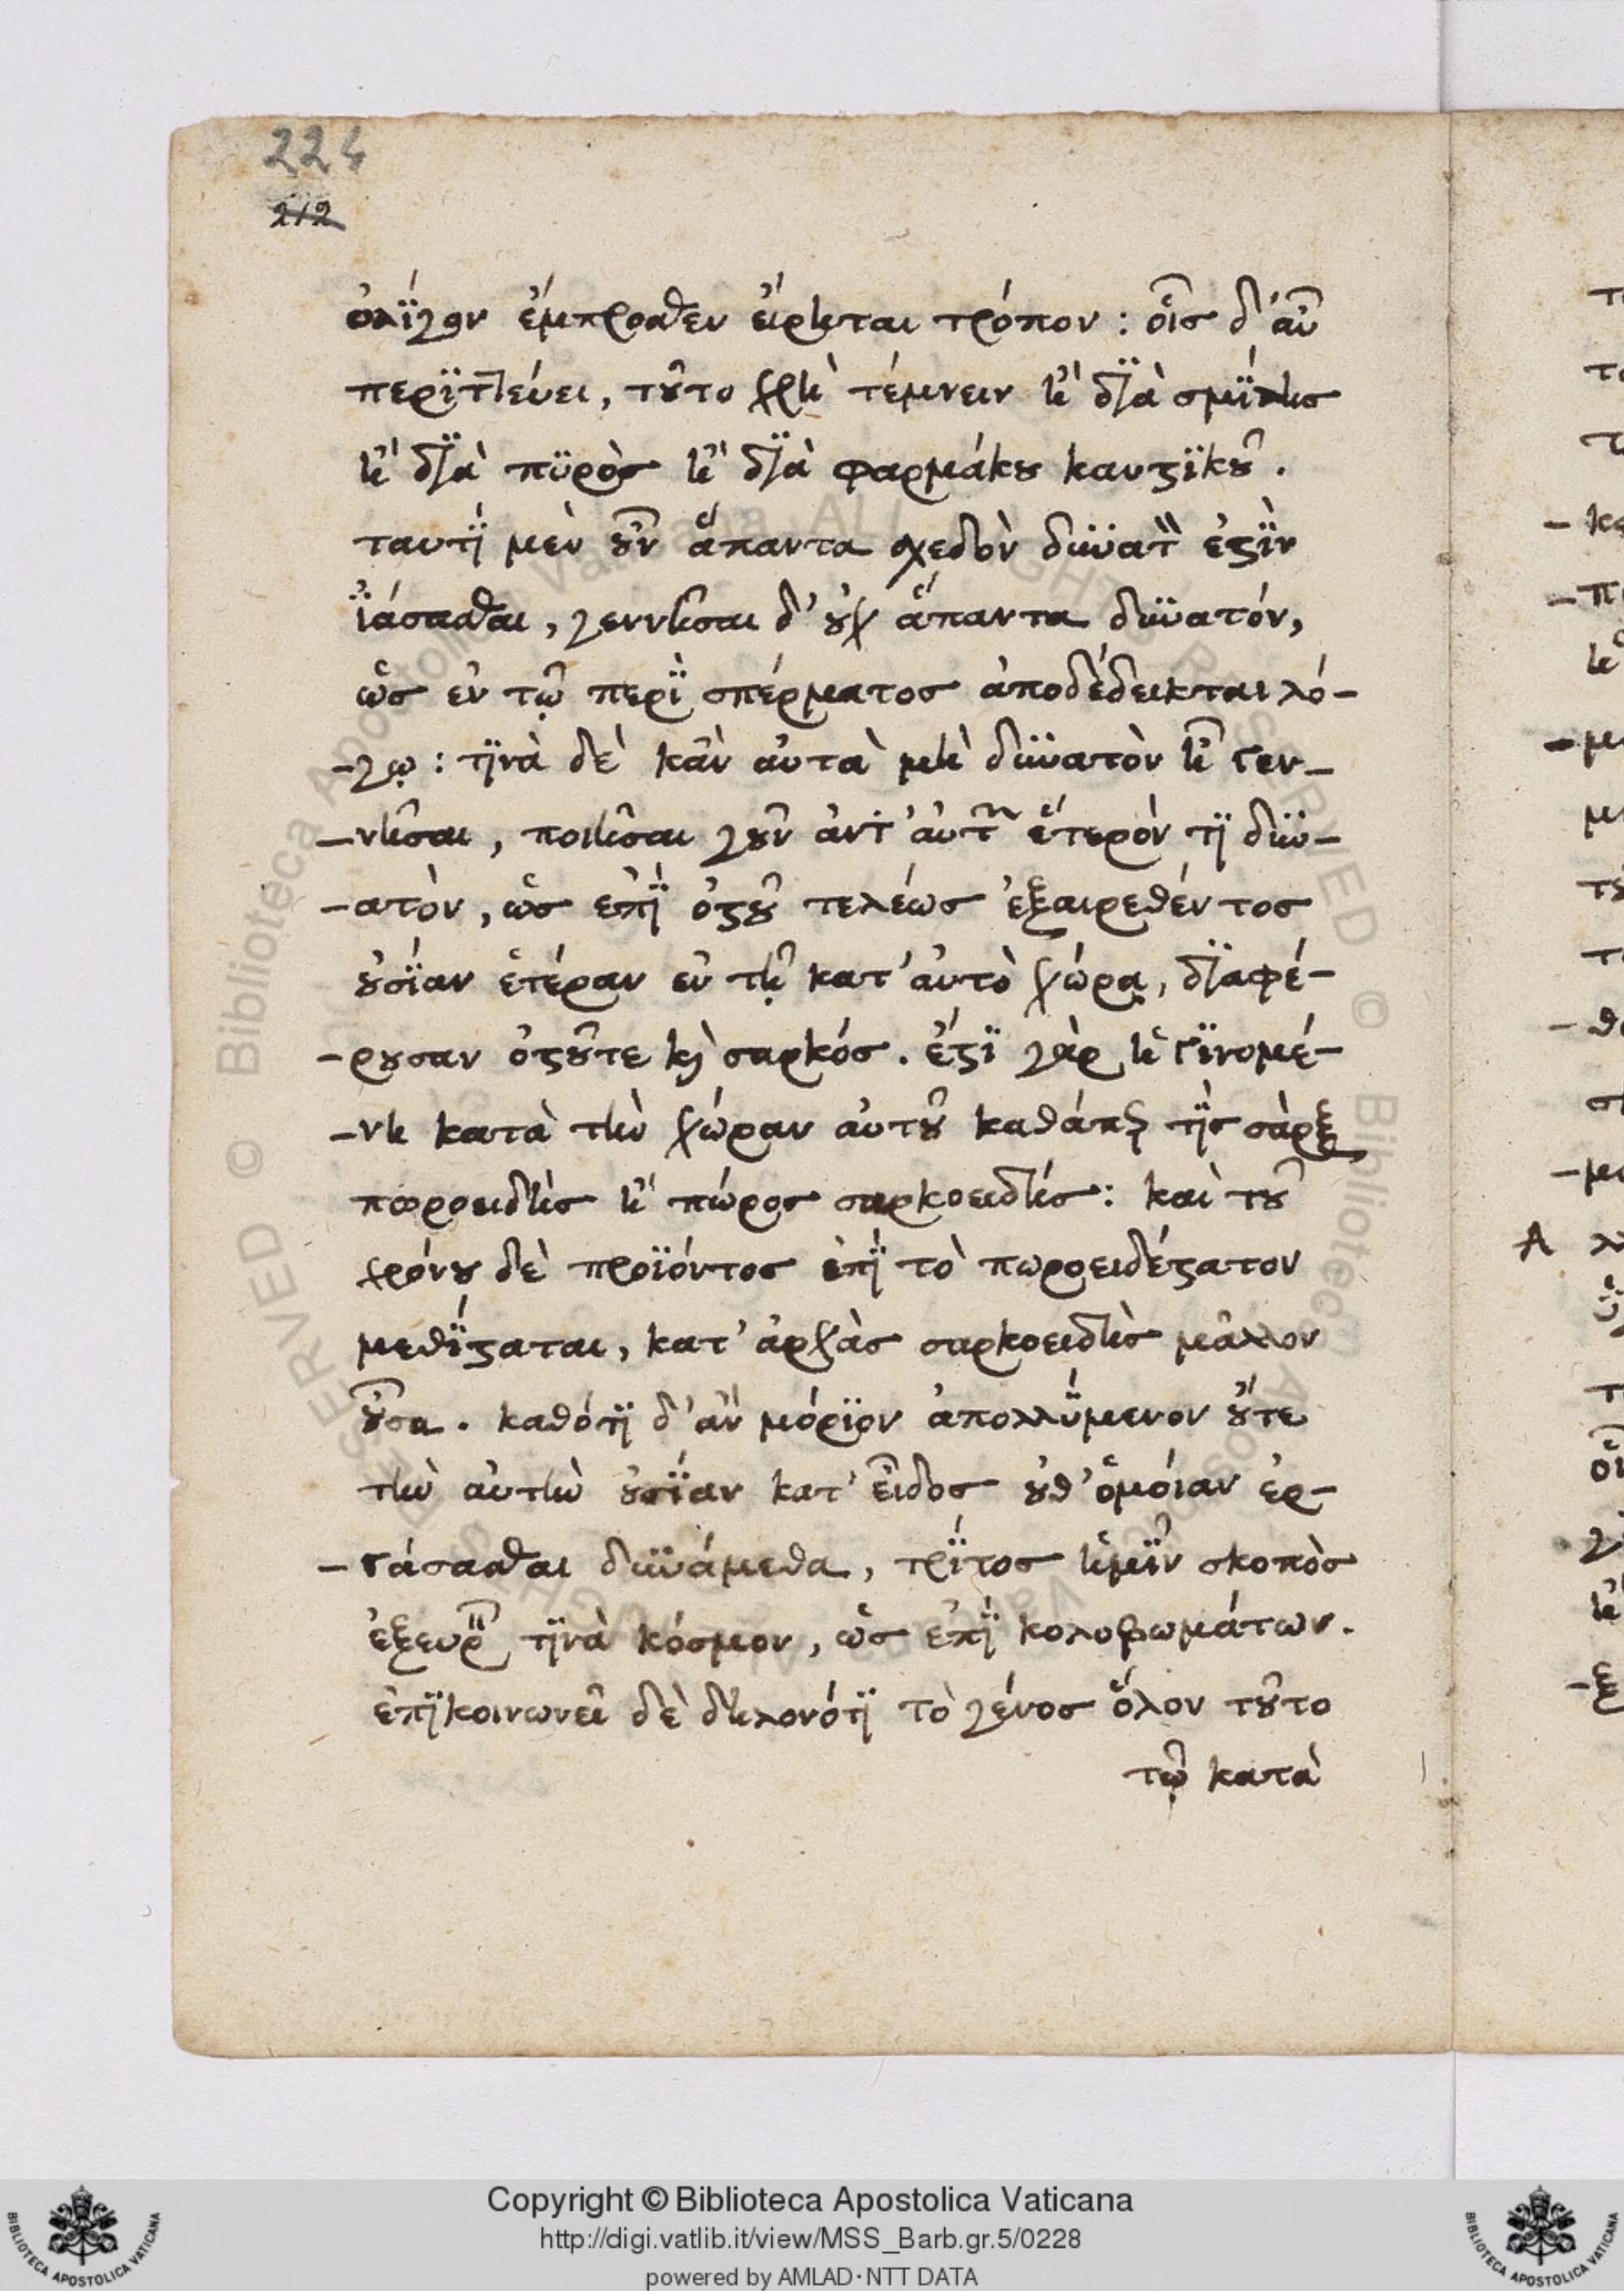 224
212
ὀλίγον ἔμπροσθεν εἴρηται τρόπον : οἷς δ' ἂν
περιττεύει, τοῦτο χρὴ τέμνειν ἢ διὰ σμίλης
ἢ διὰ πυρὸς ἢ διὰ φαρμάκου καυστικοῦ.
ταυτὶ μὲν οὖν ἅπαντα σχεδὸν δυνατὸν ἐστὶν
ἰάσασθαι, γεννῆσαι δ' οὐχ ἅπαντα δυνατόν,
ὡς ἐν τῷ περὶ σπέρματος ἀποδέδεικται λό-
-γῳ : τινὰ δὲ κἂν αὐτὰ μὴ δυνατὸν ἦ γεν-
-νῆσαι, ποιῆσαι γοῦν ἀντ' αὐτῶν ἕτερόν τι δυν-
-ατὸν, ὡς ἐπὶ ὀστοῦ τελέως ἐξαιρεθέντος
οὐσίαν ἑτέραν ἐν τῇ κατ' αὐτὸ χώρᾳ, διαφέ-
-ρουσαν ὀστοῦτε καὶ σαρκός. ἔστι γὰρ ἡ γινομέ-
-νη κατὰ τὴν χώραν αὐτοῦ καθάπερ τὶς σὰρξ
πωροειδὴς ἢ πώρος σαρκοειδής : καὶ τοῦ
χρόνου δὲ προϊόντος ἐπὶ τὸ πωροειδέστατον
μεθίσταται, κατ' ἀρχὰς σαρκοειδὴς μᾶλλον
οὖσα. καθότι δ' ἂν μόριον ἀπολλύμενον οὔτε
τὴν αὐτὴν οὐσίαν κατ' εἶδος οὐθ' ὁμόιαν ἐρ-
-γάσασθαι δυνάμεθα, τρίτος ἡμῖν σκοπὸς
ἐξευρεῖν τινὰ κόσμον, ὡς ἐπὶ κολοβωμάτων.
ἐπικοινωνεῖ δὲ δηλονότι τὸ γένος ὅλον τοῦτο
τῷ κατὰ
Copyright © Biblioteca Apostolica Vaticana
http://digi.vatlib.it/view/MSS_Barb.gr.5/0228
powered by AMLAD·NTT DATA